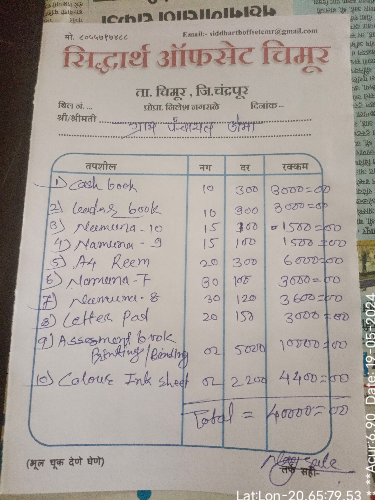 मो. ८०५५७९७४८८
Email:- siddharthoffsetcmr@gmail.com
सिद्धार्थ ऑफसेट चिमूर
ता. चिमूर , जि.चंद्रपूर
बिल नं. ... प्रोप्रा. निलेश नगराळे दिनांक--
श्री/श्रीमती ग्राम पंचायत
तपशील नग दर रक्कम
1) Cash book 10 300 3000=00
2) Leadar book 10 300 3000=00
3) Neemuna - 10 15 100 1500=00
4) Namuna - 9 15 100 1500=00
5) A4 Reem 20 300 6000=00
6) Namuna - 7 30 100 3000=00
7) Neemuna - 8 30 120 3600=00
8) Letter Pad 20 150 3000=00
9) Assesment book
Printing/Binding 02 5000 10000=00
10) Colour Ink Sheet 02 2200 4400=00
Total = 40000=00
(भूल चूक देणे घेणे)
सही-
Lat:Lon-20.65:79.53
Date:19-05-2024